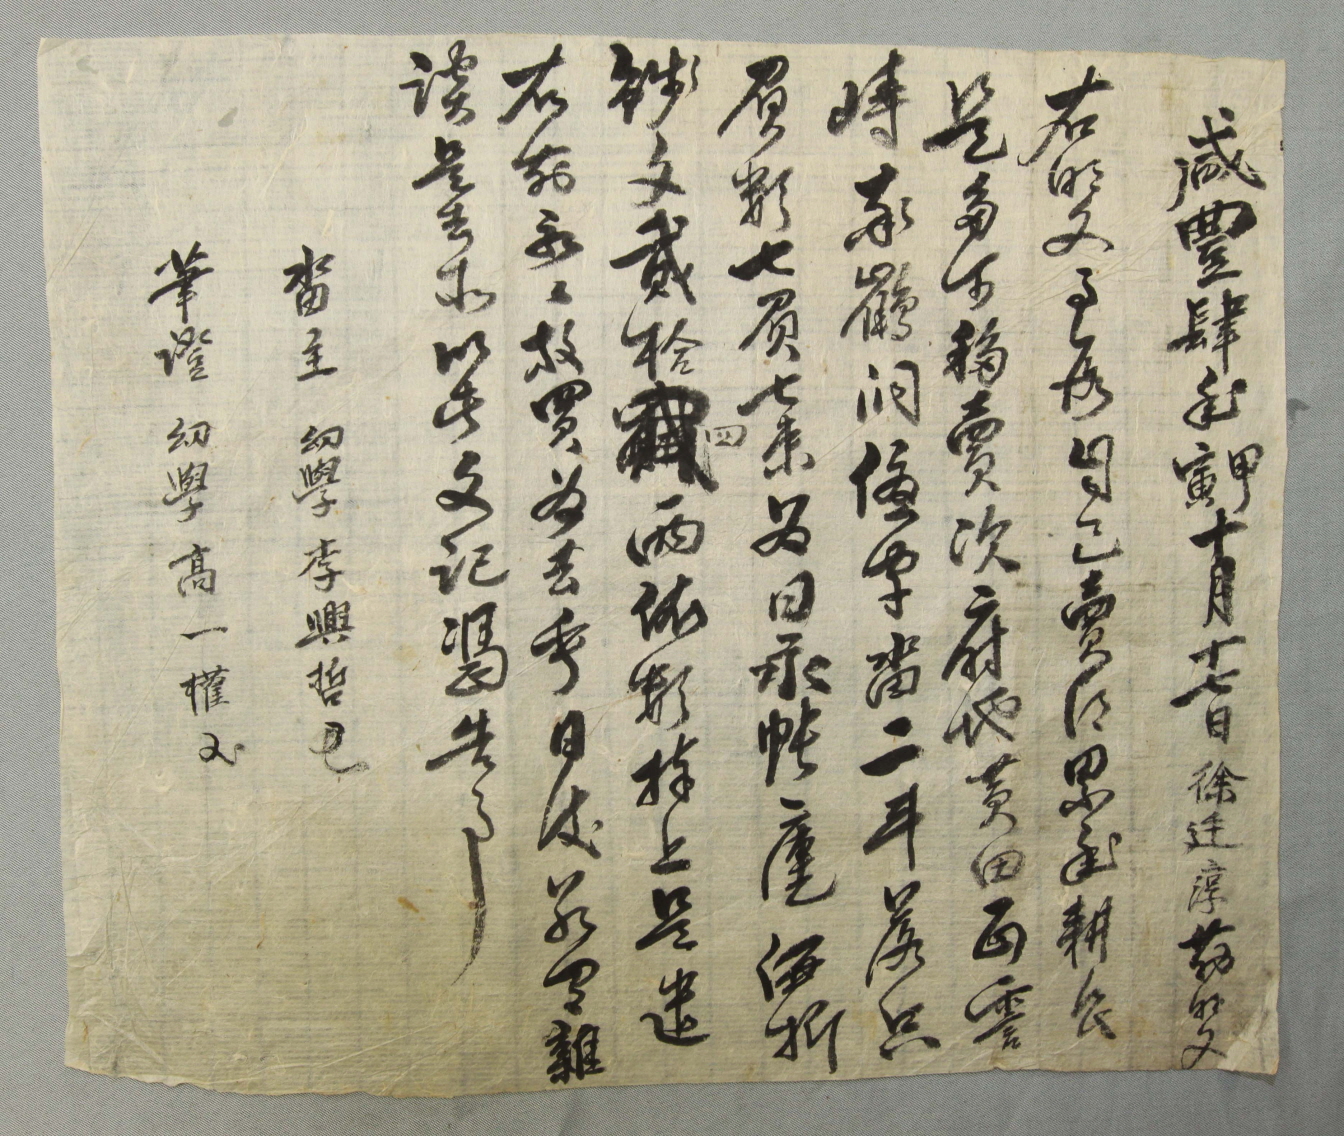 咸豐肆年甲寅十月十七日 徐廷淳前明文
右明文事段自己買得累年耕食
是多可移買次府地黃田面雲
峙員鶴洞伏字畓二斗落只
負數七負七束㐣日永帳庫価折
錢文貳拾四兩依數捧上是遣
右前永永放賣爲去乎日後若有雜
談是去等以此文記憑告事
畓主 幼學 李興哲
筆證 幼學 高一權